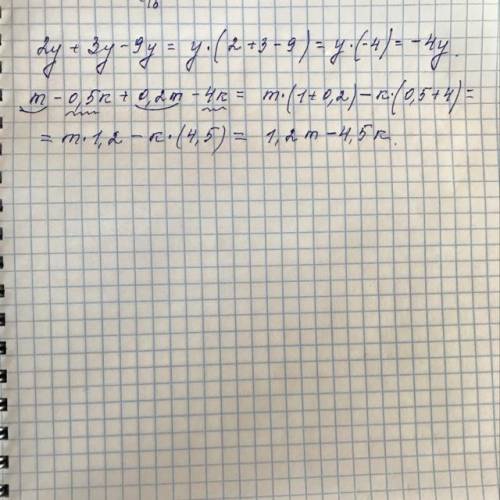 2y + 3y - 9y = y·(2+3-9) = y·(-4) = -4y.
m - 0,5к + 0,2m - 4к = m·(1+0,2) - к·(0,5+4) =
= m·1,2 - к·(4,5) = 1,2m - 4,5к.